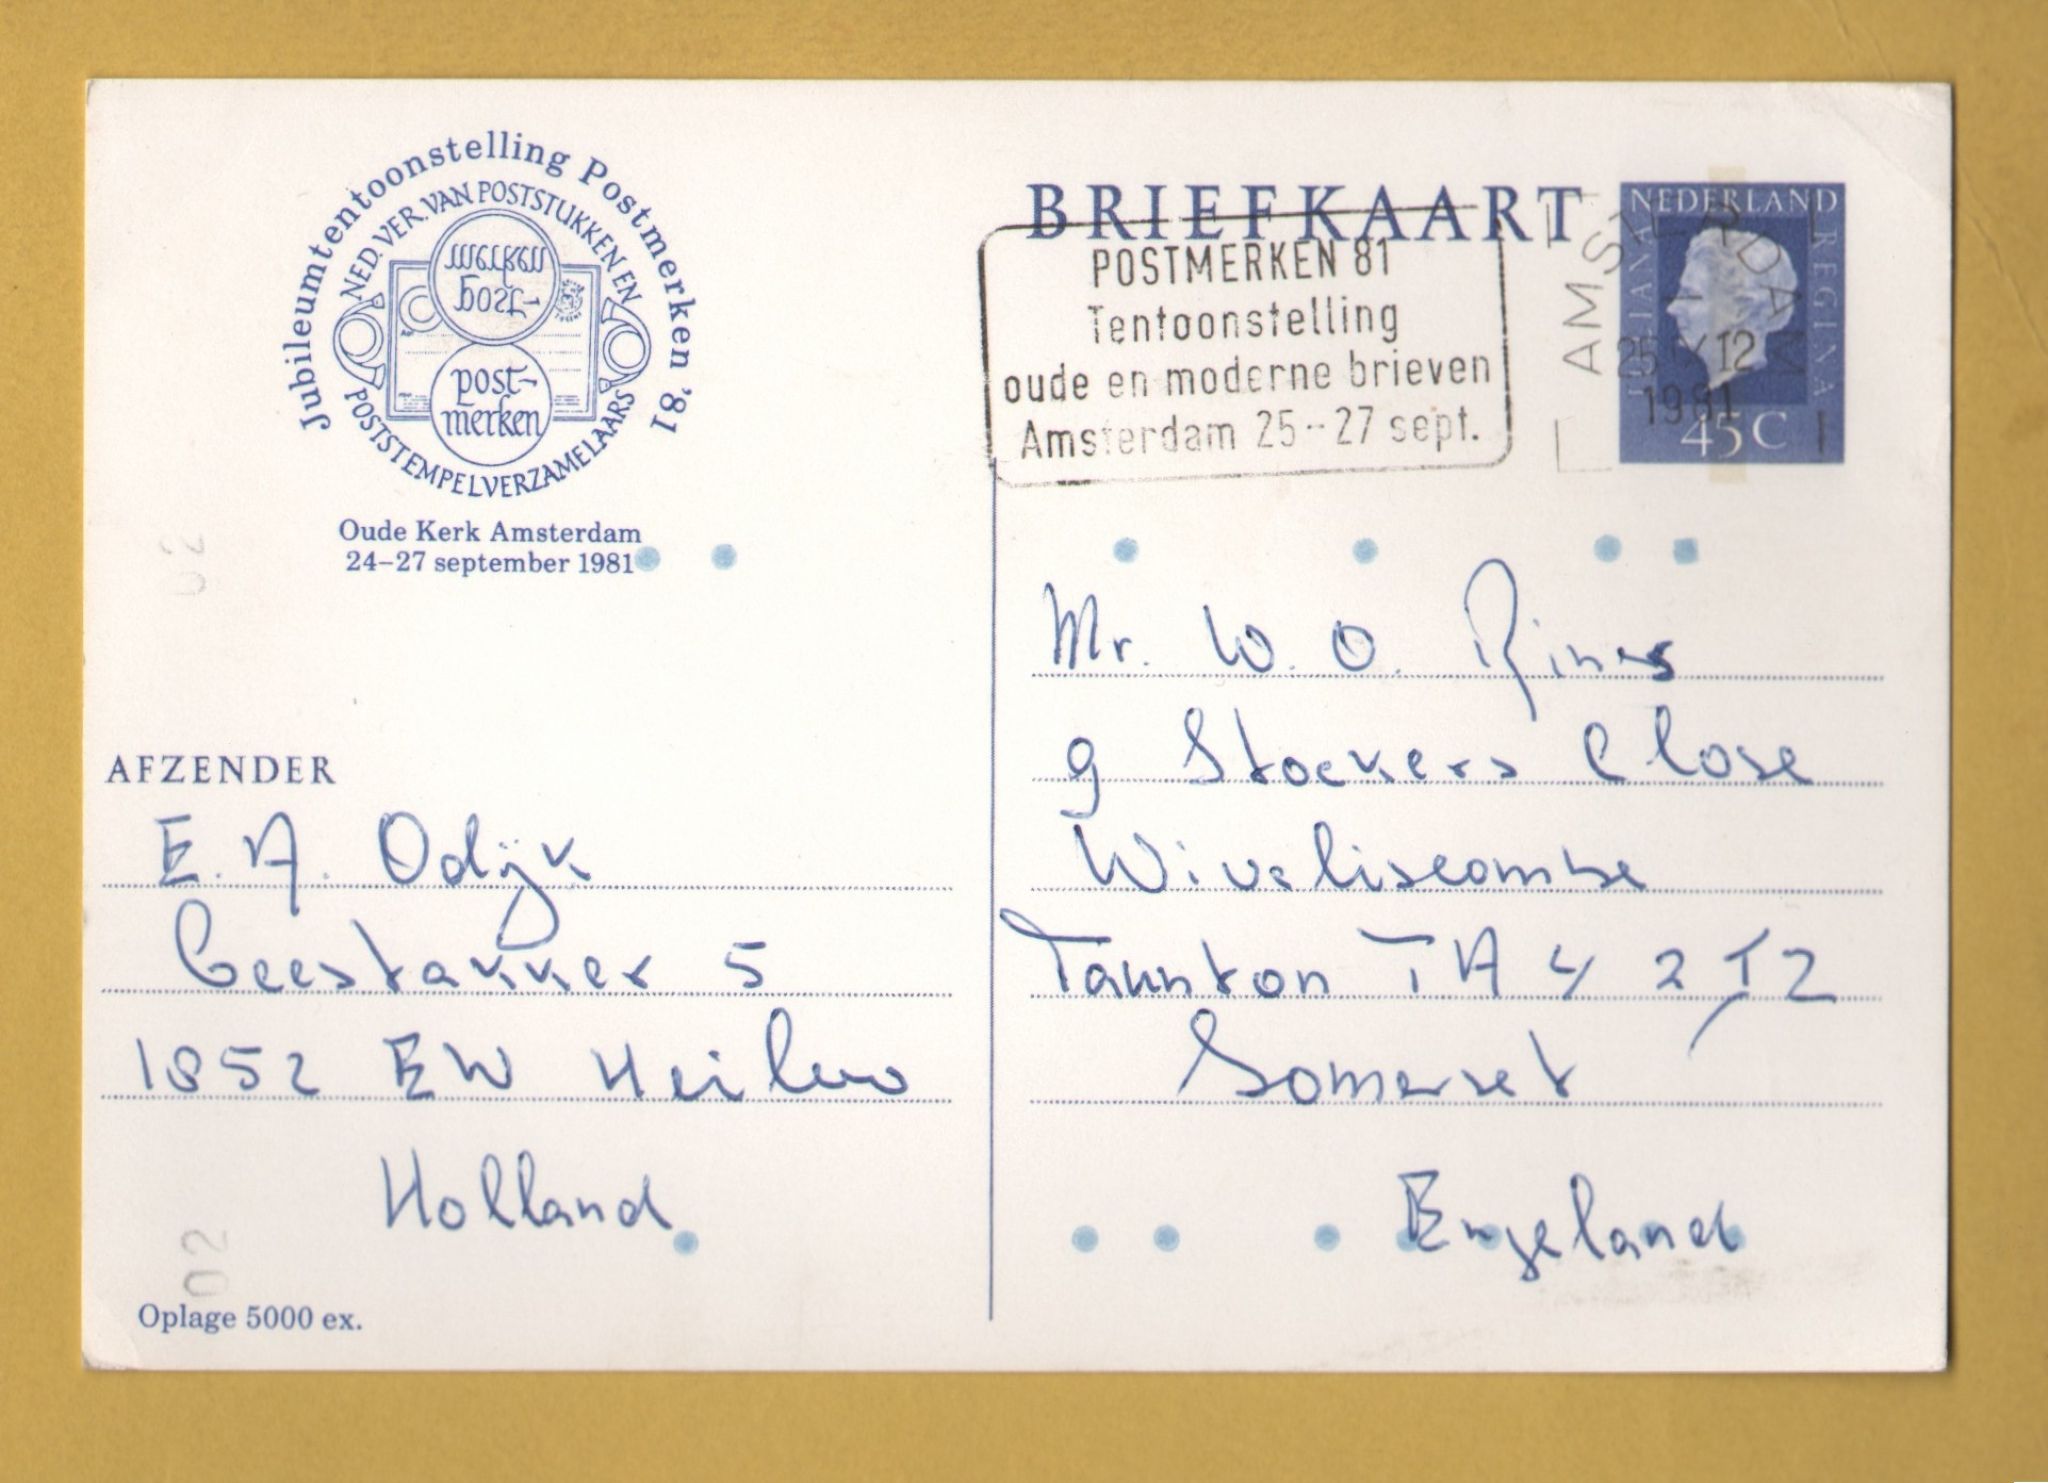 Jubileumtentoonstelling Postmerken '81
NED. VER. VAN POSTSTUKKEN EN
POSTSTEMPELVERZAMELAARS
post-
merken
post-
merken
Oude Kerk Amsterdam
24–27 september 1981
BRIEFKAART
NEDERLAND
JULIANA
REGINA
45 C
POSTMERKEN 81
Tentoonstelling
oude en moderne brieven
Amsterdam 25--27 sept.
AMSTERDAM
25 IX 12
1981
02
AFZENDER
E. A. Odijk
Geestakker 5
1852 EW Heiloo
Holland
02
Oplage 5000 ex.
Mr. W. O.
9 Stockers Close
Wiveliscombe
Taunton TA 4 2
Somerset
Engeland